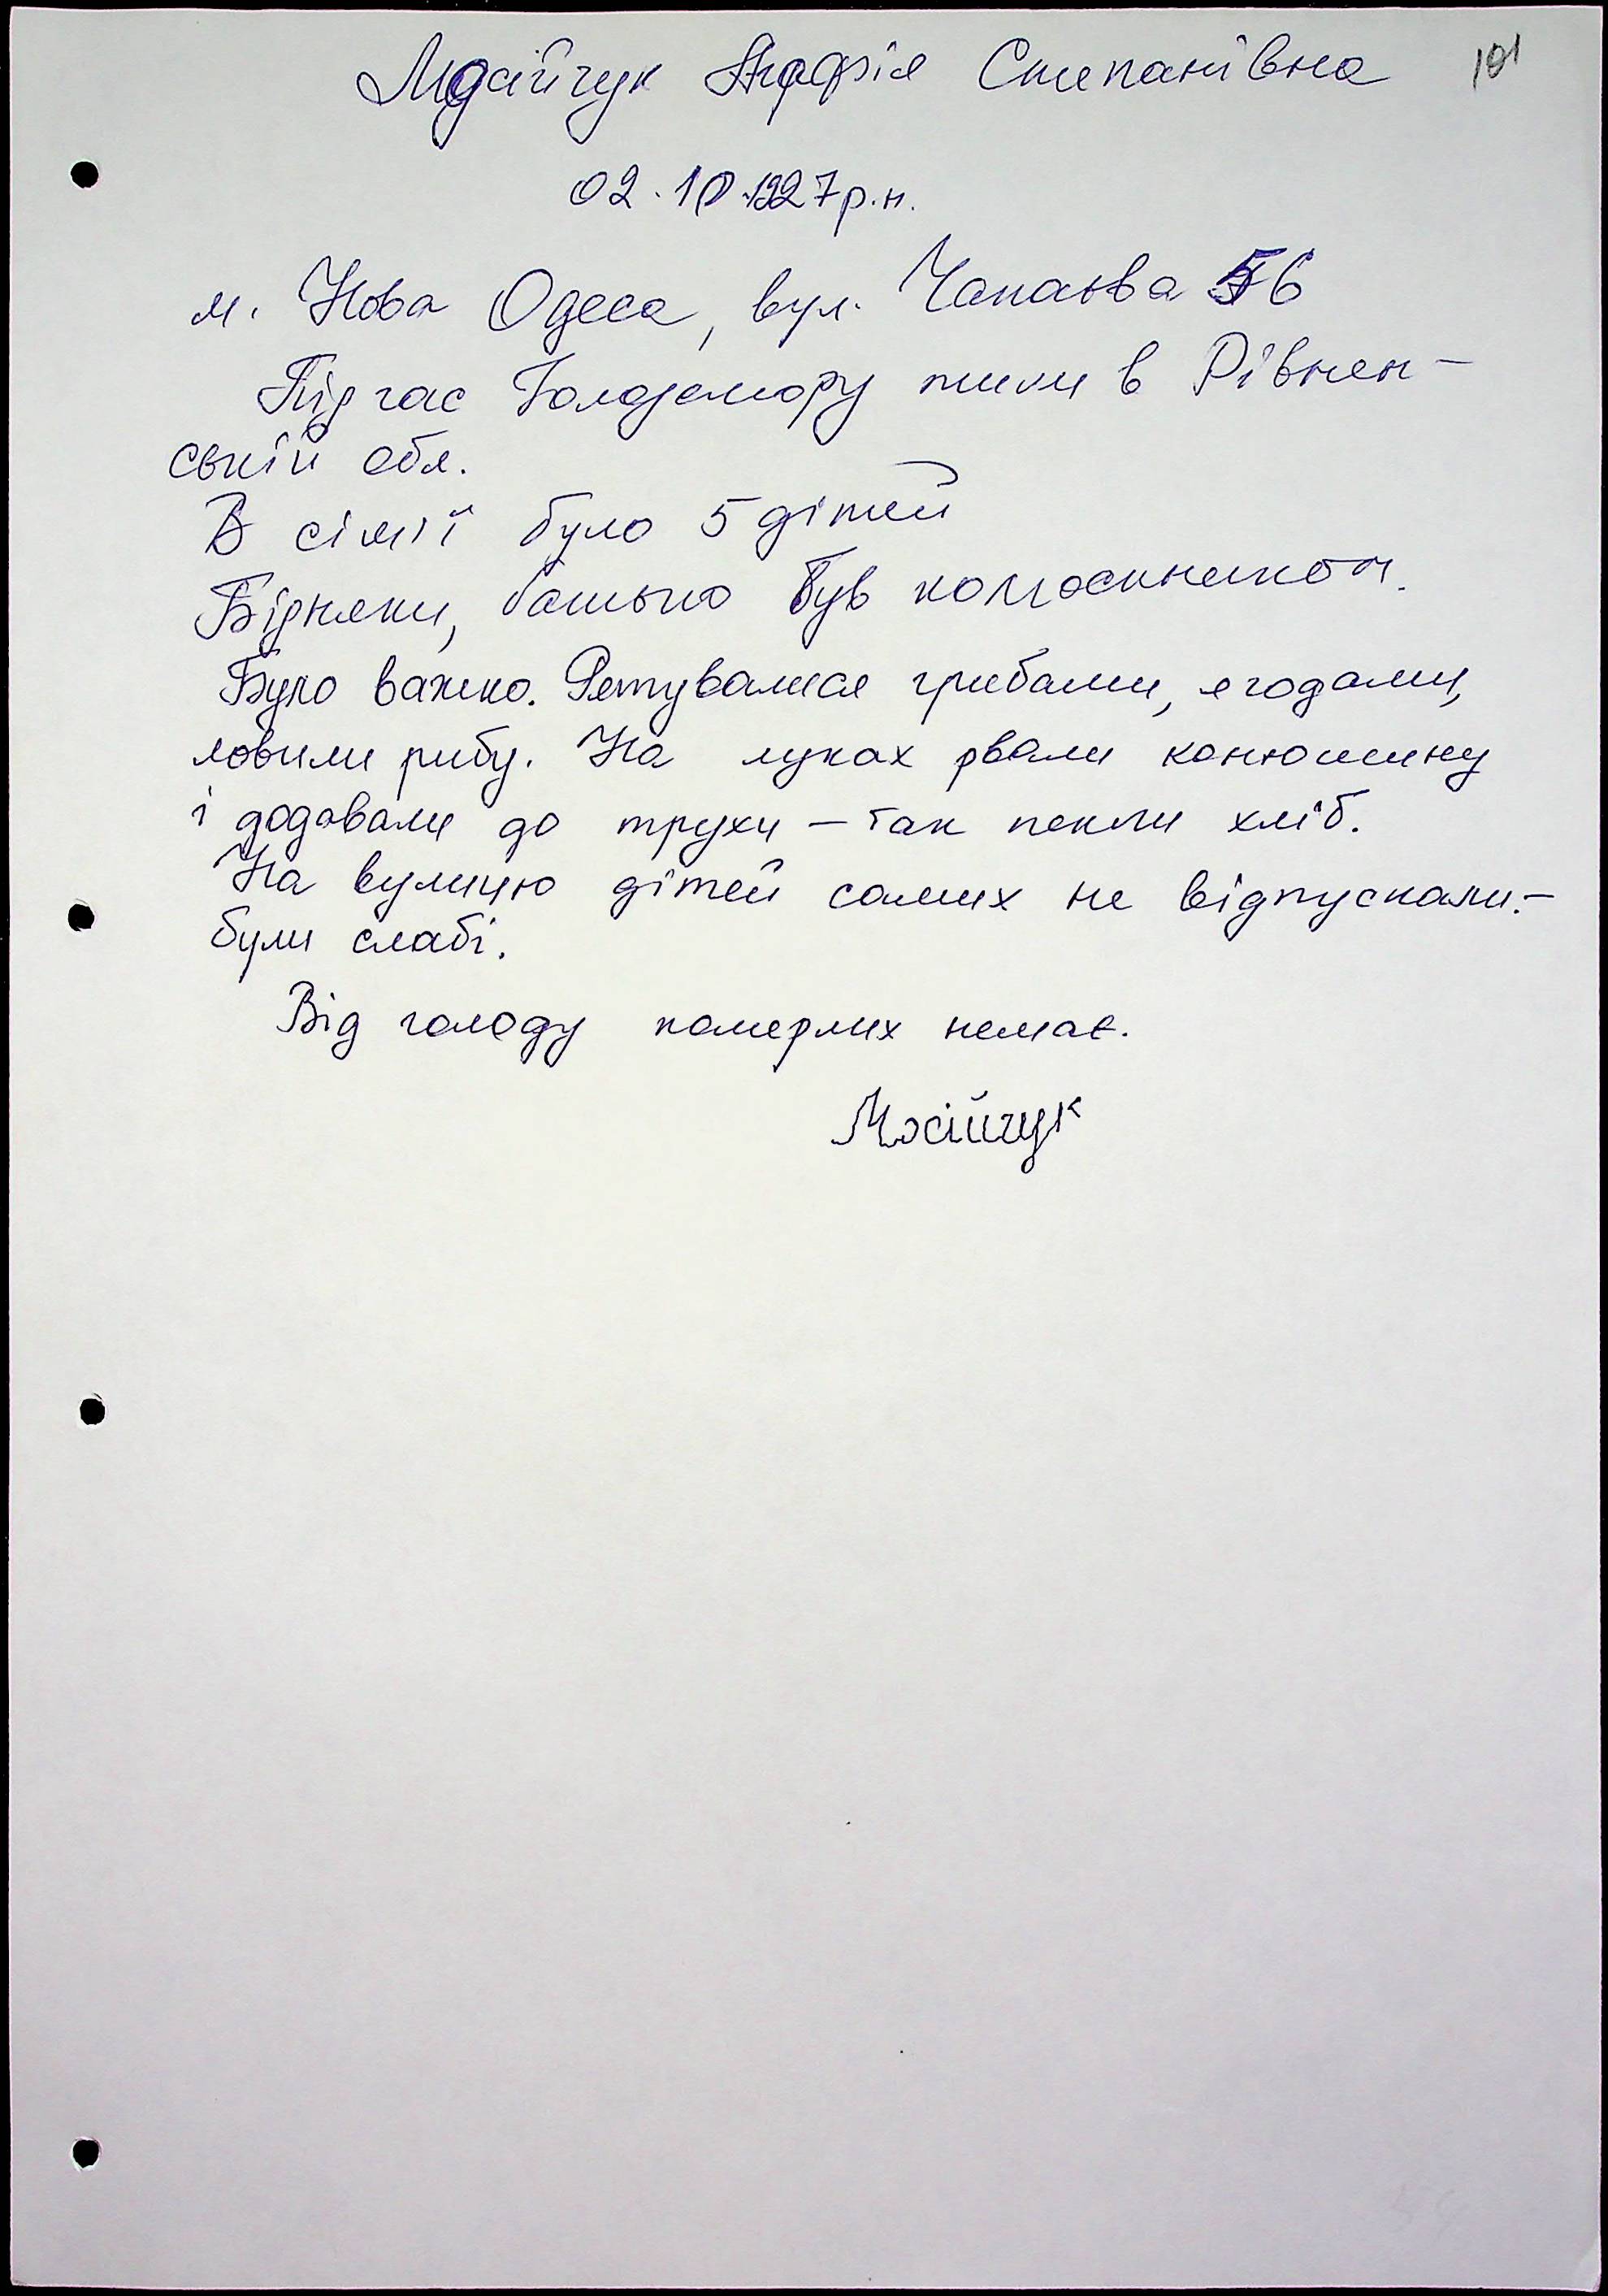 101
Мосійчук Агафія Степанівна
02.10.1927 р.н.
м. Нова Одеса, вул. Чапаєва 56
Під час Голодомору жили в Рівнен-
ській обл.
В сім'ї було 5 дітей
Бідняки, батько був колгоспником.
Було важко. Рятувалися грибами, ягодами,
ловили рибу. На луках рвали конюшину
і додавали до трухи – так пекли хліб.
На вулицю дітей самих не відпускали. –
були слабі.
Від голоду померлих немає.
Мосійчук